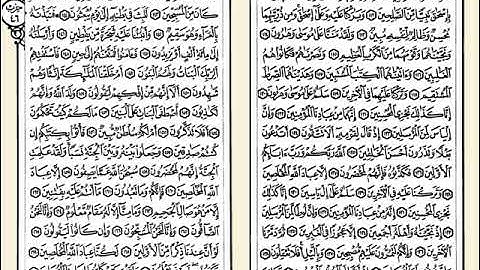 بإسحق نبيا من الصلحين ١١٢ وبركنا عليه وعلى إسحق ومن ذريتهما
ونجينهما وقومهما من الكرب العظيم ١١٥ ونصرنهم فكانوا هم
الغلبين ١١٦ وءاتينهما الكتب المستبين ١١٧ وهدينهما الصرط
المستقيم ١١٨ وتركنا عليهما في الءاخرين ١١٩ سلم على موسى وهرون ١٢٠
إنا كذلك نجزي المحسنين ١٢١ إنهما من عبادنا المؤمنين ١٢٢
وإن إلياس لمن المرسلين ١٢٣ إذ قال لقومه ألا تتقون ١٢٤ أتدعون
بعلا وتذرون أحسن الخلقين ١٢٥ الله ربكم ورب ءابائكم
الأولين ١٢٦ فكذبوه فإنهم لمحضرون ١٢٧ إلا عباد الله المخلصين ١٢٨
وتركنا عليه في الءاخرين ١٢٩ سلم على إل ياسين ١٣٠ إنا كذلك
نجزي المحسنين ١٣١ إنه من عبادنا المؤمنين ١٣٢ وإن لوطا لمن
المرسلين ١٣٣ إذ نجينه وأهله أجمعين ١٣٤ إلا عجوزا في الغبرين ١٣٥ ثم دمرنا
الءاخرين ١٣٦ وإنكم لتمرون عليهم مصبحين ١٣٧ وباليل أفلا تعقلون ١٣٨
كان من المسبحين ١٤٣ للبث في بطنه إلى يوم يبعثون ١٤٤ فنبذنه
بالعراء وهو سقيم ١٤٥ وأنبتنا عليه شجرة من يقطين ١٤٦ وأرسلنه
إلى مائة ألف أو يزيدون ١٤٧ فءامنوا فمتعنهم إلى حين ١٤٨ فاستفتهم
ألربك البنات ولهم البنون ١٤٩ أم خلقنا الملئكة إنثا وهم
شهدون ١٥٠ ألا إنهم من إفكهم ليقولون ١٥١ ولد الله وإنهم
لكذبون ١٥٢ أصطفى البنات على البنين ١٥٣ ما لكم كيف تحكمون ١٥٤
أفلا تذكرون ١٥٥ أم لكم سلطن مبين ١٥٦ فأتوا بكتبكم إن
كنتم صدقين ١٥٧ وجعلوا بينه وبين الجنة نسبا ولقد علمت
الجنة إنهم لمحضرون ١٥٨ سبحن الله عما يصفون ١٥٩ إلا عباد
الله المخلصين ١٦٠ فإنكم وما تعبدون ١٦١ ما أنتم عليه بفتنين ١٦٢
إلا من هو صال الجحيم ١٦٣ وما منا إلا له مقام معلوم ١٦٤ وإنا لنحن
الصافون ١٦٥ وإنا لنحن المسبحون ١٦٦ وإن كانوا ليقولون ١٦٧
لو أن عندنا ذكرا من الأولين ١٦٨ لكنا عباد الله المخلصين ١٦٩